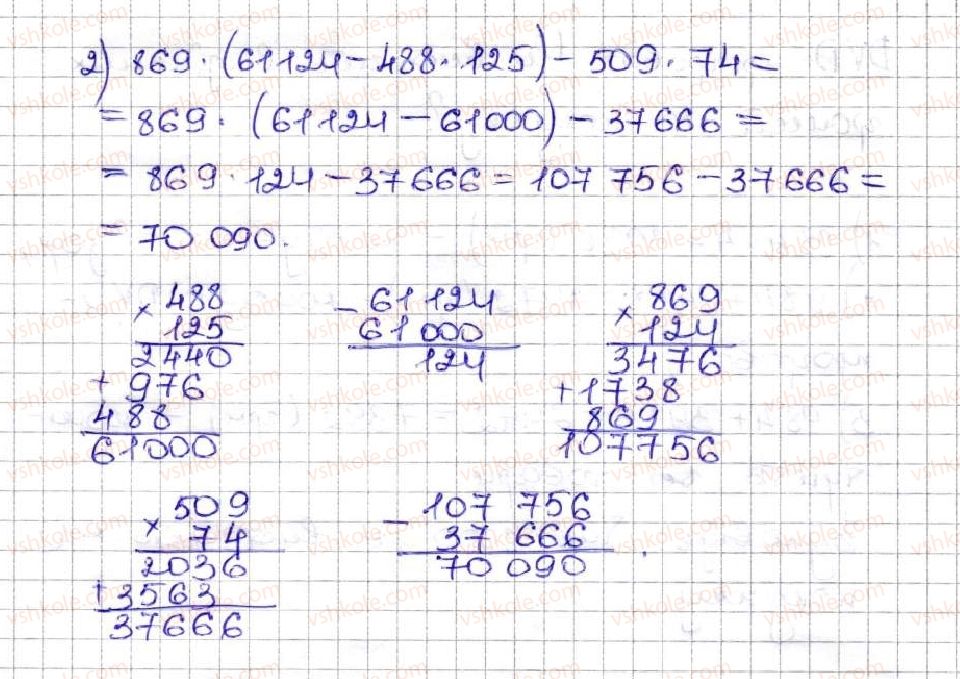 2) 869 · (61124 - 488 · 125) - 509 · 74 =
= 869 · (61124 - 61000) - 37666 =
= 869 · 124 - 37666 = 107 756 - 37 666 =
= 70 090.
× 488
125
2440
+ 976
488
61000
- 61 124
61 000
124
× 869
124
3476
+ 1738
869
107756
× 509
74
2036
+ 3563
37666
- 107 756
37 666
70 090